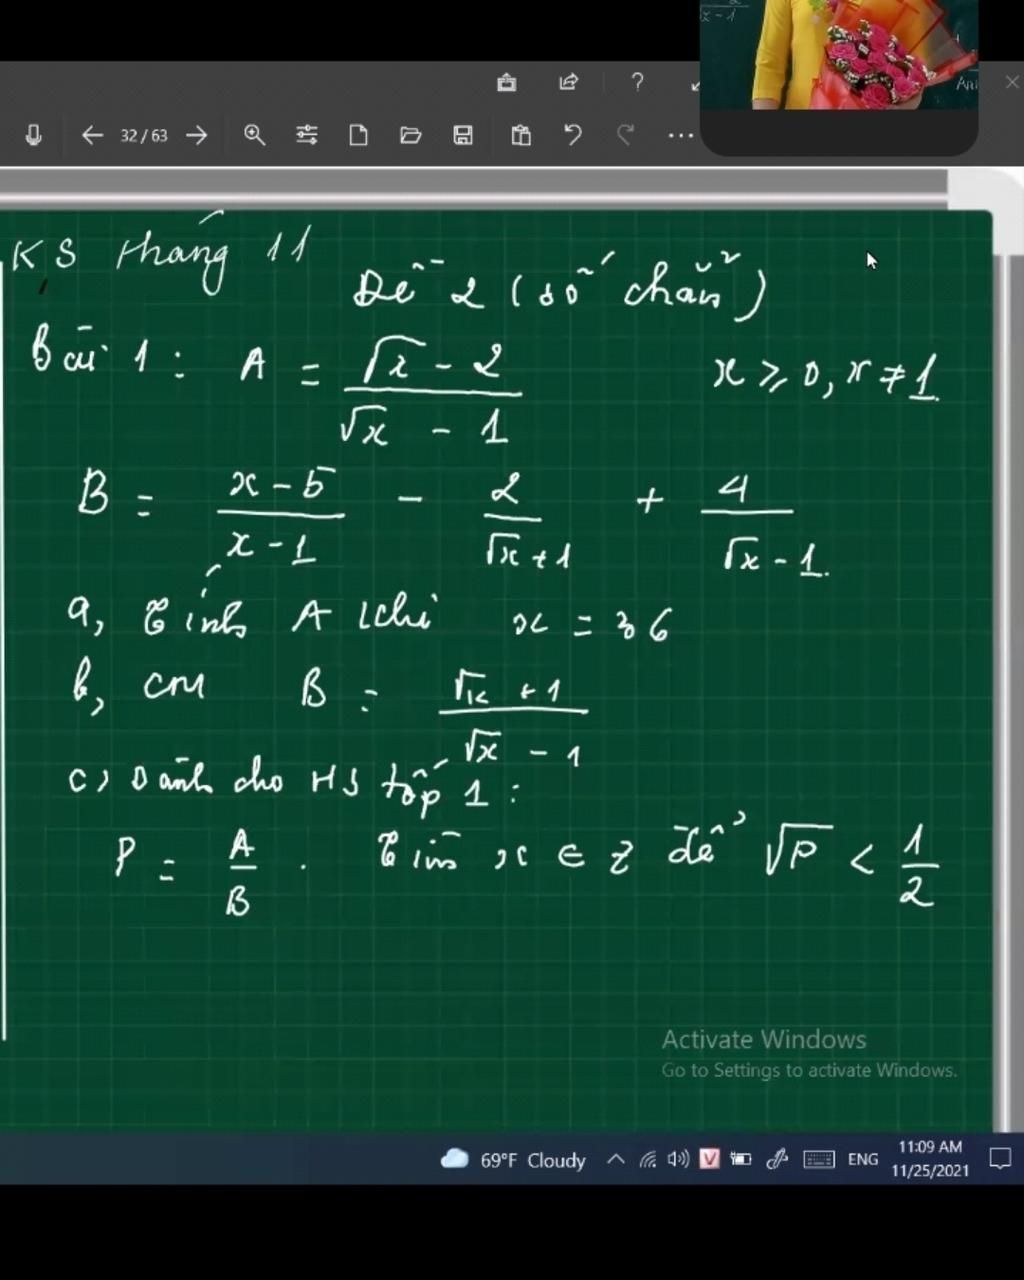 x - 1
An
32 / 63
KS tháng 11
Đề 2 (số chẵn)
Bài 1 : A = (√x - 2)/(√x - 1) x ≥ 0, x ≠ 1
B = (x - 5)/(x - 1) - 2/(√x + 1) + 4/(√x - 1)
a, Tính A khi x = 36
b, cm B = (√x + 1)/(√x - 1)
c, Dành cho HS tốp 1 :
P = A/B . Tìm x ∈ Z để √P < 1/2
Activate Windows
Go to Settings to activate Windows.
69°F Cloudy ENG 11:09 AM
11/25/2021